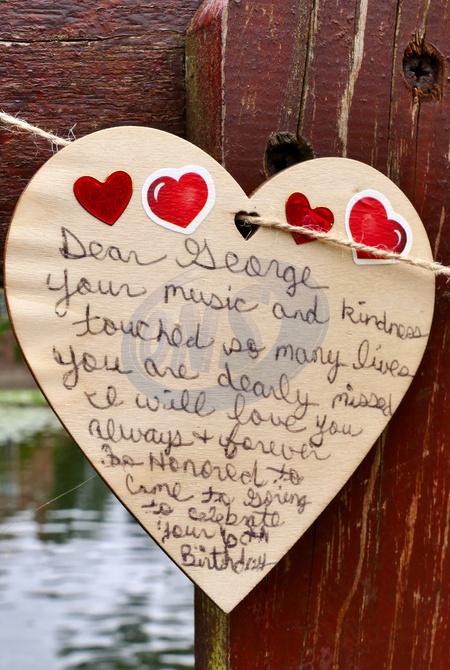 Dear George
Your music and kindness
touched so many lives
you are dearly missed
I will love you
always + forever
So Honored to
Come to Goring
to celebrate
your 60th
Birthday